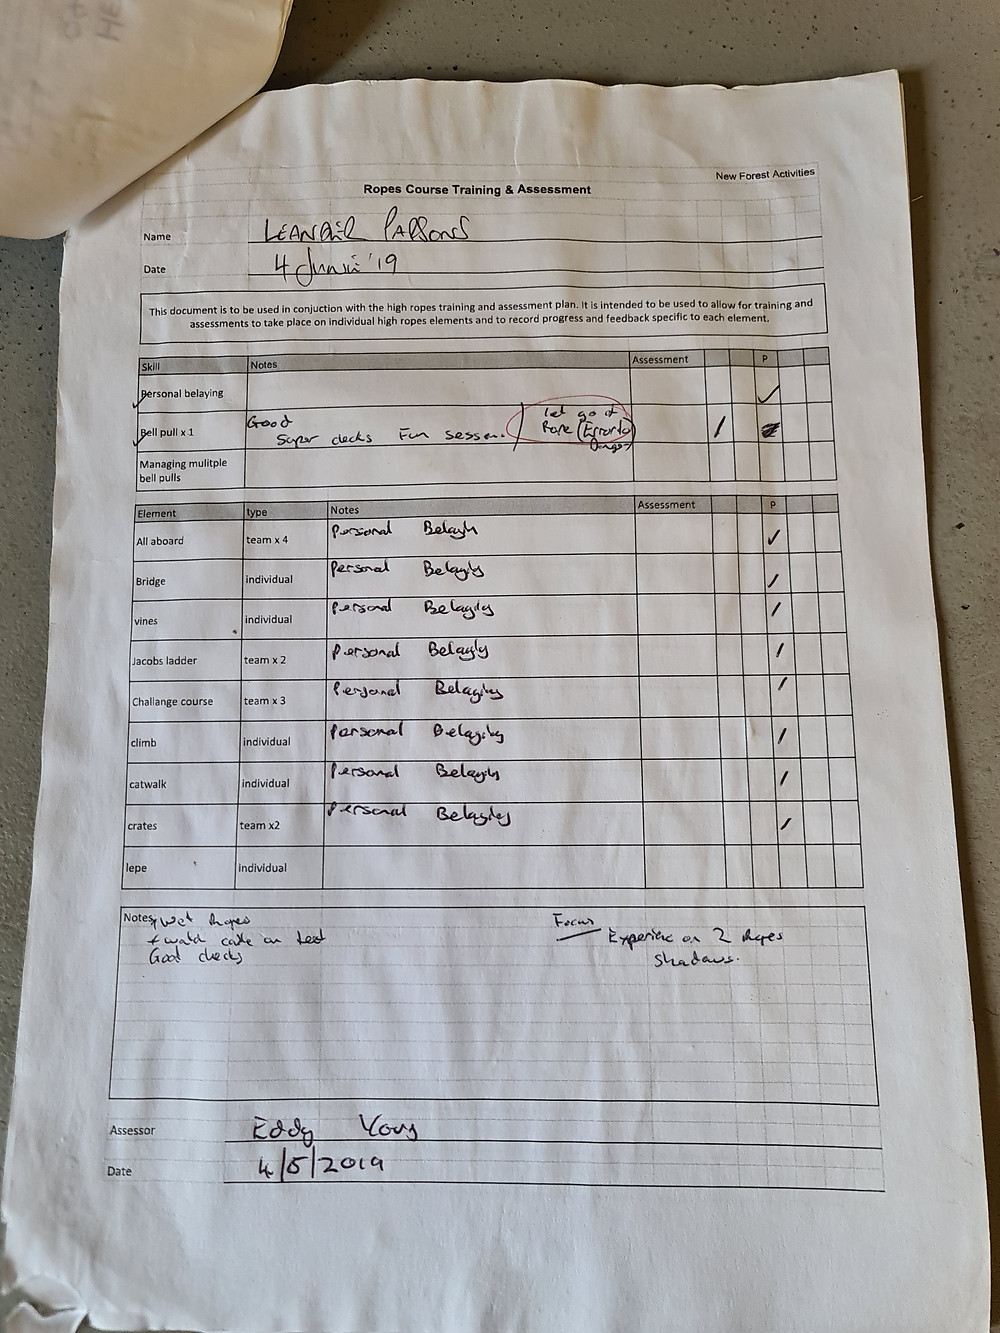 New Forest Activities
Ropes Course Training & Assessment
Name
Date 4 '19
This document is to be used in conjuction with the high ropes training and assessment plan. It is intended to be used to allow for training and
assessments to take place on individual high ropes elements and to record progress and feedback specific to each element.
Skill Notes Assessment P
Personal belaying ✓
Bell pull x 1 Good let go of
Super checks Fun session. / Rope (Error to
Danger)
Managing mulitple
bell pulls
Element type Notes Assessment P
All aboard team x 4 Personal ✓
Bridge individual Personal Belaying /
vines individual Personal Belaying /
Jacobs ladder team x 2 Personal Belaying /
Challange course team x 3 Personal Belaying /
climb individual Personal Belaying /
catwalk individual Personal /
crates team x2 Personal Belaying /
lepe individual
Notes * Wet Ropes Focus
Experience on 2 Ropes
Good checks Shadows.
Assessor Eddy
Date 4/5/2019